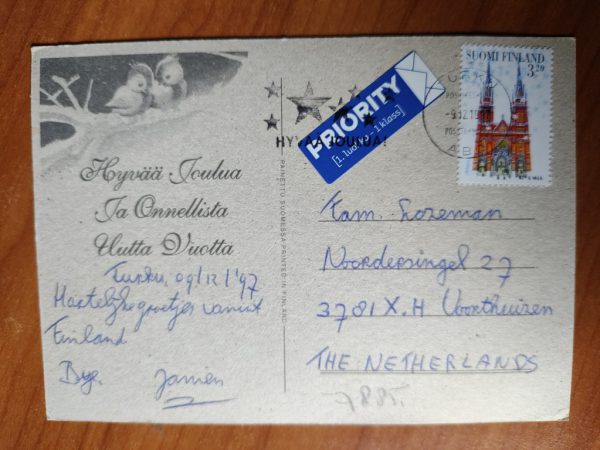 Hyvää Joulua
Ja Onnellista
Uutta Vuotta
Turku, 09/12/'97
Hartelijke groetjes vanuit
Finland
Bye. Janien
PAINETTU SUOMESSA PRINTED IN FINLAND
HYVÄÄ JOULUA!
PRIORITY
[1. luokka - 1 klass]
SUOMI FINLAND
3,20
Fam. Lozeman
Noordersingel 27
3781 X.H Voorthuizen
THE NETHERLANDS
7885.